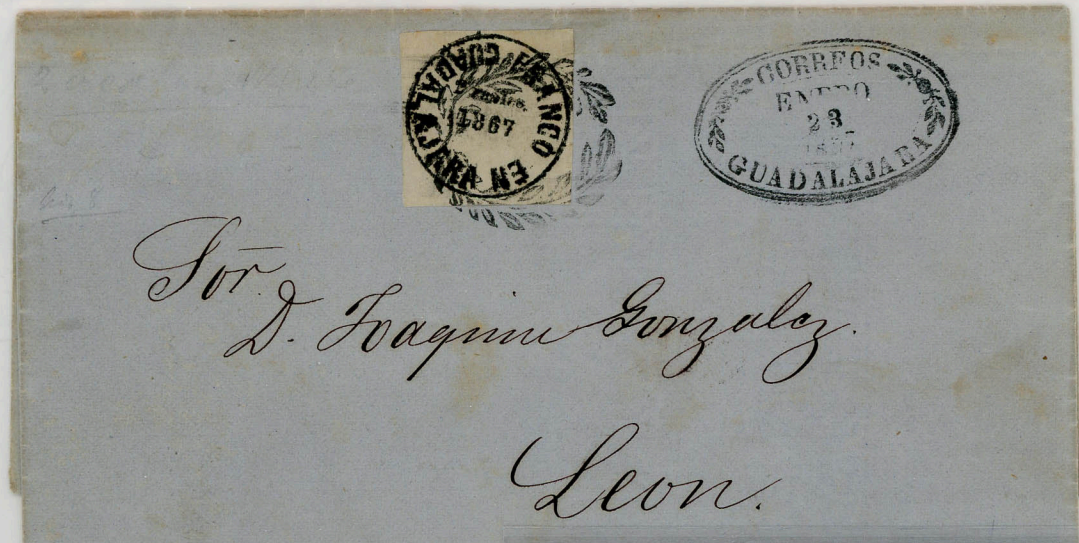 FRANCO EN GUADALAJARA
1867
CORREOS
ENERO
23
1867
GUADALAJARA
Sōr.
D. Joaquin Gonzalez.
Leon.